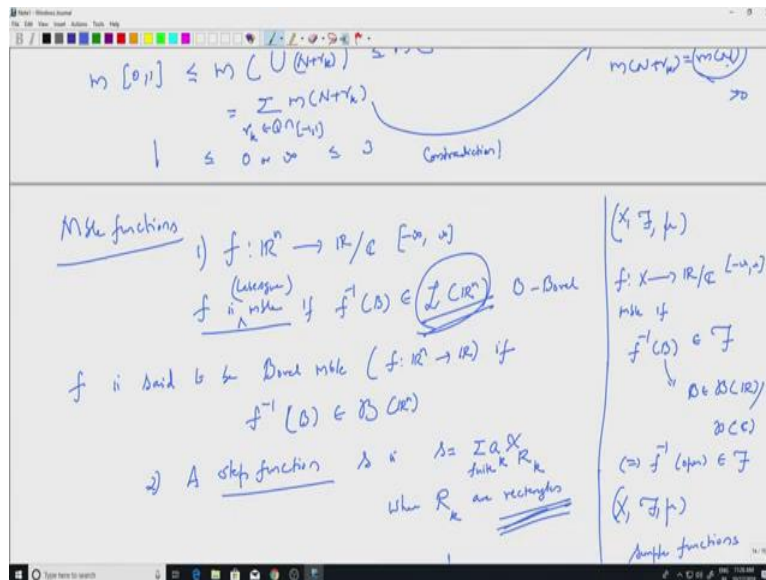 Note1 - Windows Journal
File Edit View Insert Actions Tools Help
m [0,1] ≤ m ( ∪ (N+r_k) ) ≤
= Σ m(N+r_k)
r_k ∈ Q ∩ [-1,1]
1 ≤ 0 or ∞ ≤ 3 Contradiction!
m(N+r_k) = m(N)
>0
Mble functions
1) f: ℝ^n → ℝ/ℂ [-∞, ∞]
(Lebesgue)
f is mble if f^{-1}(B) ∈ ℒ(ℝ^n) B - Borel
f is said to be Borel mble (f: ℝ^n → ℝ) if
f^{-1}(B) ∈ 𝓑(ℝ^n)
2) A step function s is s = Σ a_k χ_{R_k}
finite
where R_k are rectangles
(X, ℱ, μ)
f: X → ℝ/ℂ [-∞, ∞]
mble if
f^{-1}(B) ∈ ℱ
B ∈ 𝓑(ℝ)/
𝓑(ℂ)
(=) f^{-1}(open) ∈ ℱ
(X, ℱ, μ)
Simple functions
Type here to search
ENG 11:26 AM